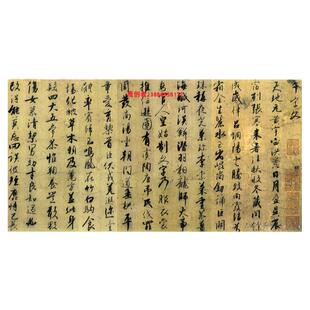 千字文
天地玄黄宇宙洪荒日月盈昃辰
宿列張寒来暑往秋收冬藏閏餘
成歲律吕調陽雲騰致雨露結為
霜金生麗水玉出崑岡劍號巨闕
珠稱夜光果珍李柰菜重芥薑
海鹹河淡鱗潛羽翔龍師火帝
鳥官人皇始制文字乃服衣裳
推位讓國有虞陶唐吊民伐罪
周發殷湯坐朝問道垂拱平
章愛育黎首臣伏戎羌遐邇壹
體率賓歸王鳴鳳在竹白駒食
場化被草木賴及萬方蓋此身
髮四大五常恭惟鞠養豈敢毀
傷女慕貞潔男效才良知過必
改得能莫忘罔談彼短靡恃己